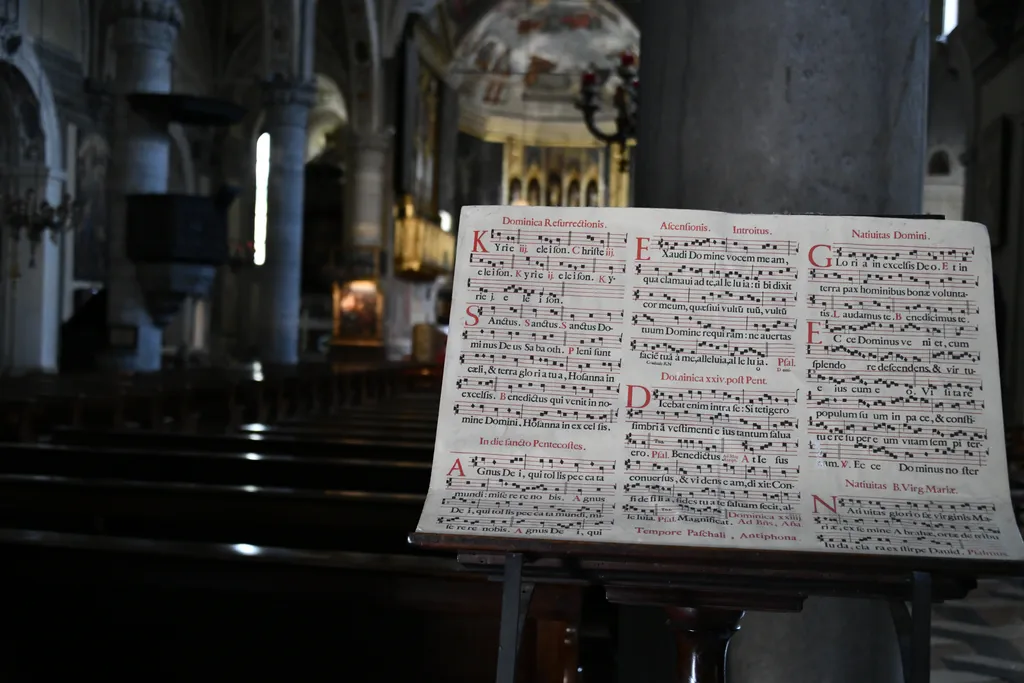 Dominica Resurrectionis.
KYrie iij. eleison. Christe iij.
eleison. Kyrie ij. eleison. Ky-
rie j. e le ison.
SAnctus, Sanctus, Sanctus Do-
minus Deus Sabaoth. Pleni sunt
cæli, & terra gloria tua, Hosanna in
excelsis. Benedictus qui venit in no-
mine Domini, Hosanna in excelsis.
In die sancto Pentecostes.
AGnus Dei, qui tollis peccata
mundi: miserere nobis. Agnus
Dei, qui tollis peccata mundi, mi-
serere nobis. Agnus Dei, qui
Ascensionis. Introitus.
EXaudi Domine vocem meam,
qua clamaui ad te, alleluia: tibi dixit
cor meum, quæsiui vultũ tuũ, vultũ
tuum Domine requiram: ne auertas
faciẽ tuã a me, alleluia, alleluia. Psal.
Dominica xxiv. post Pent.
DIcebat enim intra se: Si tetigero
fimbriã vestimenti eius tantum salua
ero. Psal. Benedictus At Iesus
conuersus, & videns eam, dixit Con-
fide filia, fides tua te saluam fecit, al-
leluia. Psal. Magnificat. Dominica xxiii
Tempore Paschali, Antiphona.
Natiuitas Domini.
GLoria in excelsis Deo. Et in
terra pax hominibus bonæ volunta-
tis. Laudamus te. Benedicimus te
ECce Dominus veniet, cum
splendore descendens, & virtu-
eius cum e Visitare
populum suum in pace, & consti-
tuere super eum vitam sempiter-
nam. V. Ecce Dominus noster
Natiuitas B. Virg. Mariæ.
NAtiuitas gloriosæ virginis Ma-
riæ ex semine Abrahæ, ortæ de tribu
Iuda, clara ex stirpe Dauid. Psalmus